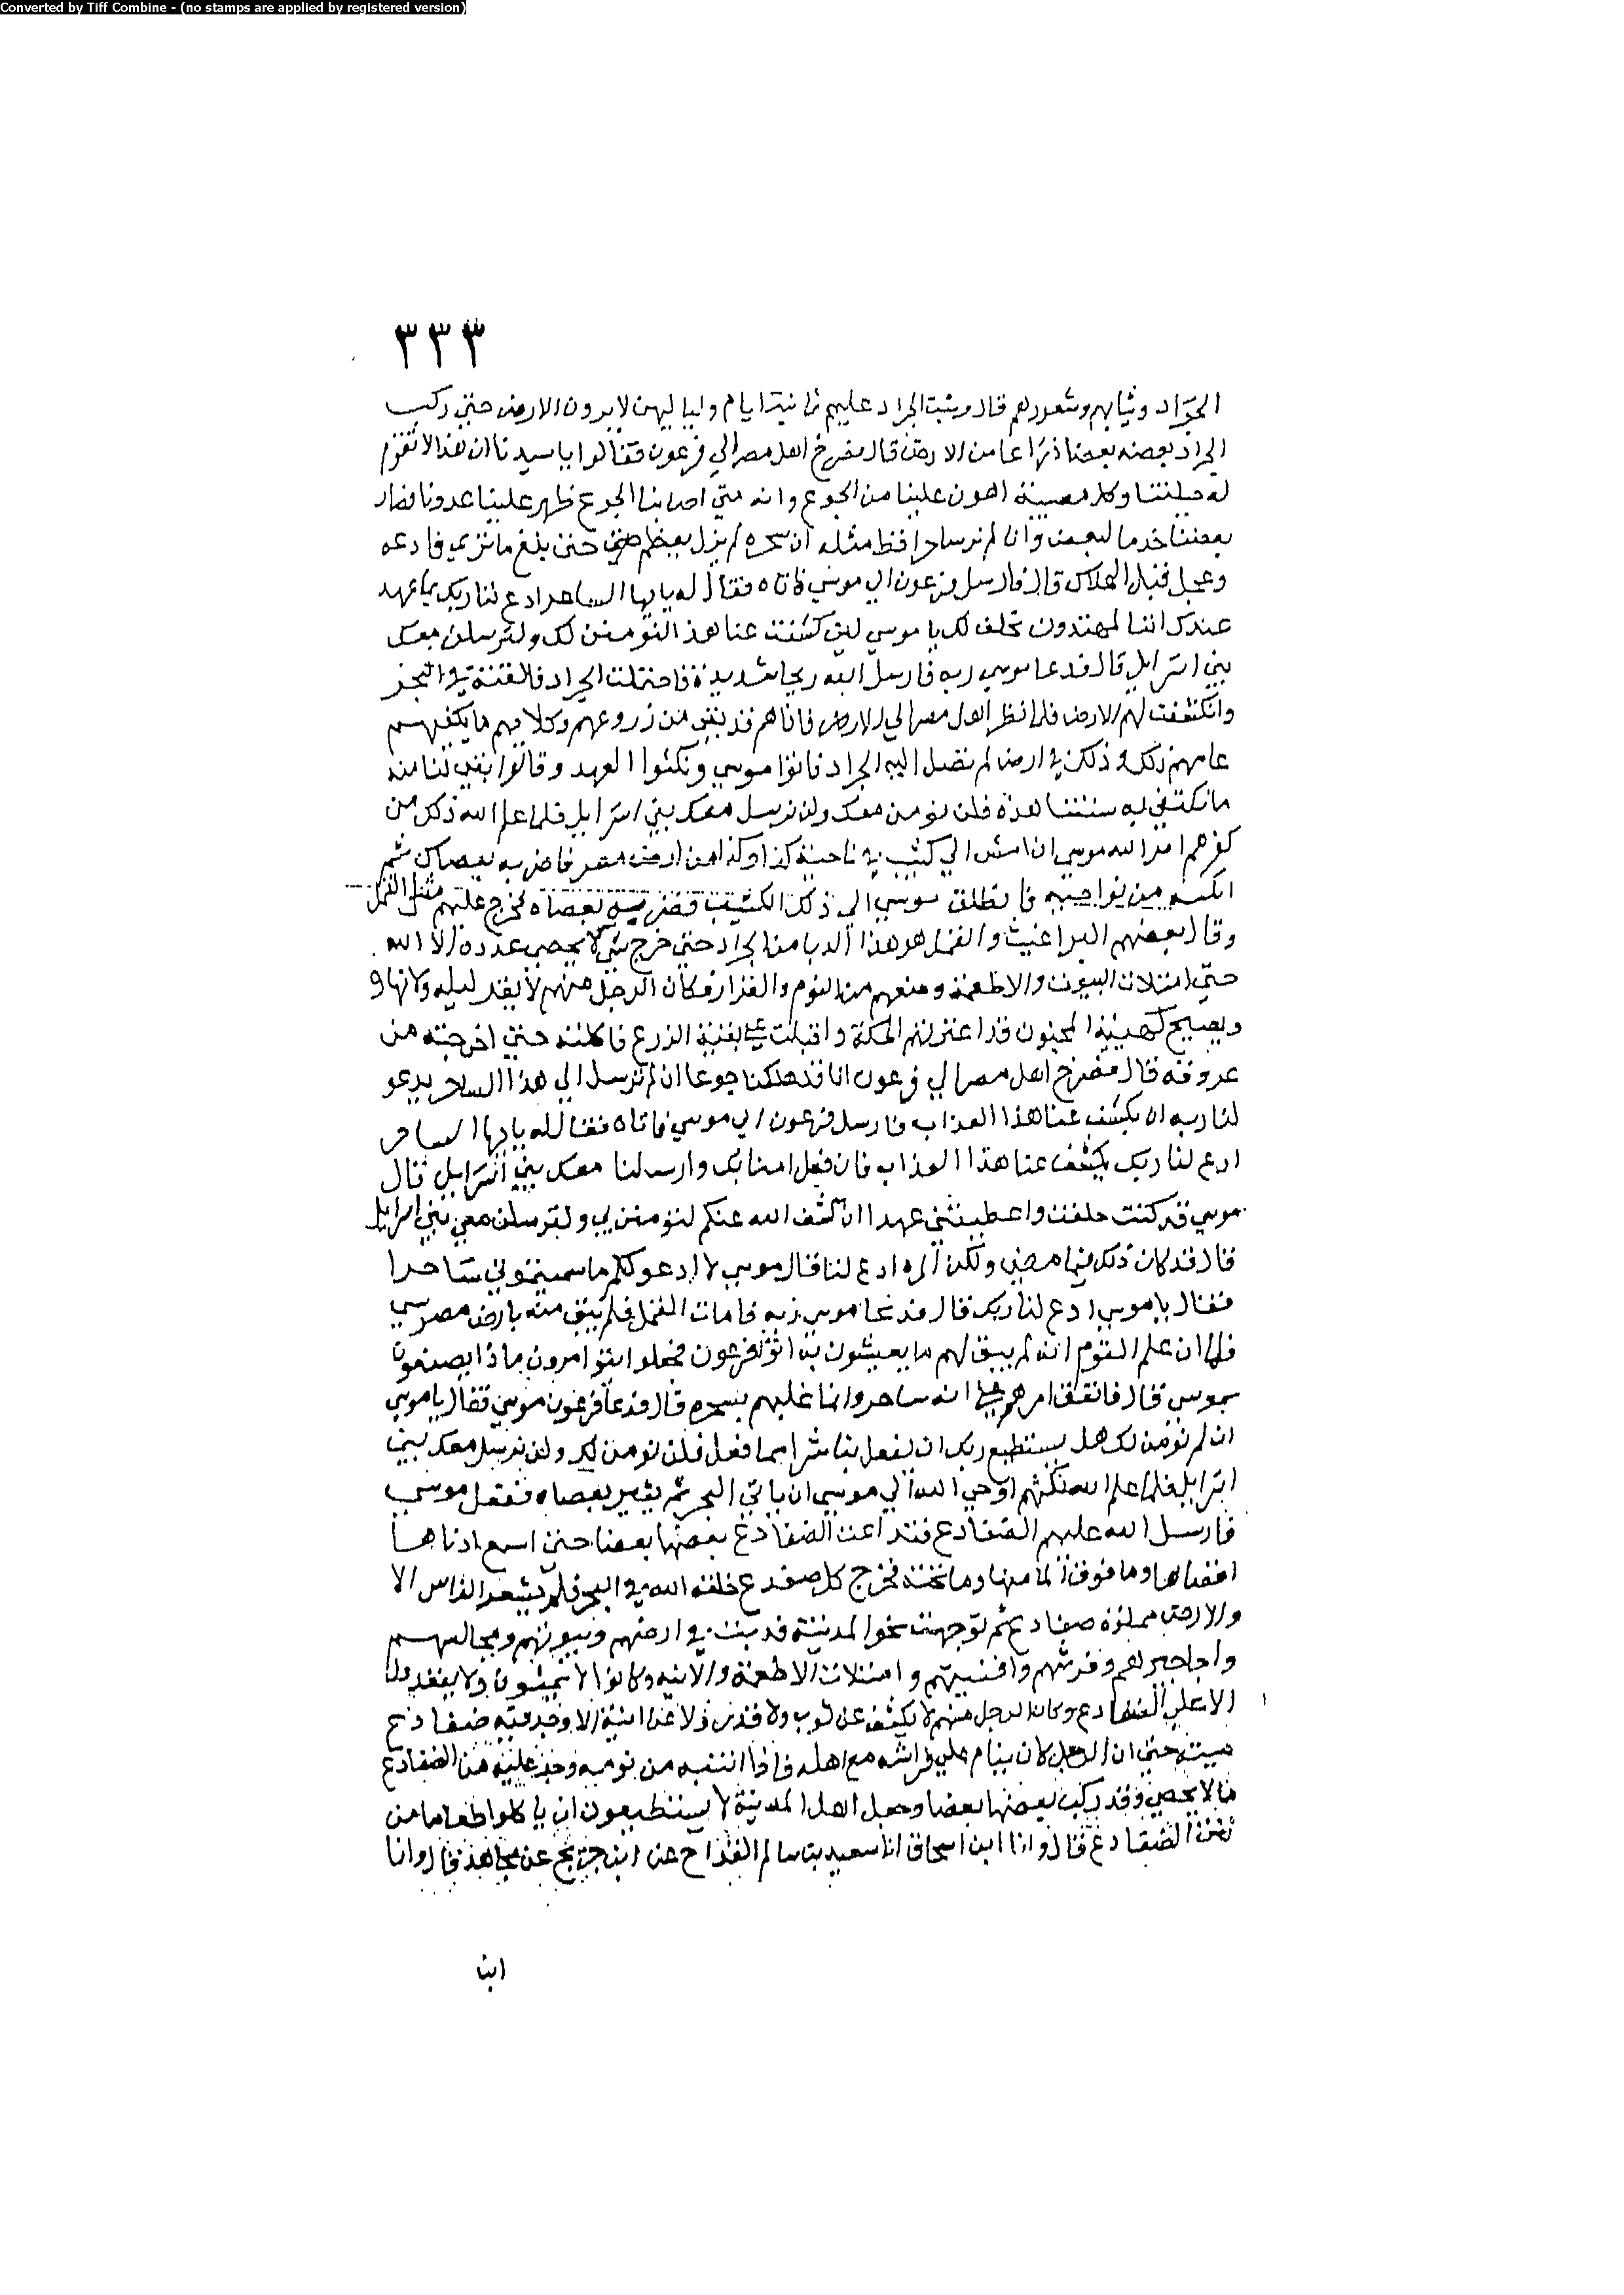 Converted by Tiff Combine - (no stamps are applied by registered version)
٣٣٣
الجراد وثيابهم وشعورهم قال وثبت الجراد عليهم ثمانية ايام ولياليهن لا يرون الارض حتى ركب
الجراد بعضه بعضا ذراعا من الارض قال ففرخ اهل مصر الي فرعون فقالوا يا سيدنا ان هذا لا تقوم
له حيلتنا وكل مصيبة اهون علينا من الجوع وانه متي اصابنا الجوع ظهر علينا عدونا فصار
بعضنا خدما لبعض وانا لم نر ساحرا قط مثله ان سحره لم يزل يعظم حتى بلغ ما تري فادعه
وعجل قبل الهلاك قال فارسل فرعون الي موسي فاتاه فقال له يايها الساحر ادع لنا ربك بما عهد
عندك اننا لمهتدون نحلف لك يا موسي لين كشفت عنا هذا لنؤمنن لك ولنرسلن معك
بني اسرايل قال فدعا موسي ربه فارسل الله ريحا شديدة فاحتملت الجراد فالقته في البحر
وانكشفت لهم الارض فلما نظر اهل مصر الي الارض فاذا هم قد بقي من زروعهم وكلايهم ما يكفيهم
عامهم ذلك وذلك في ارض لم تصل اليه الجراد فاتوا موسي ونكثوا العهد وقالوا بقي لنا منه
ما نكتفي به سنتنا هذه فلن نؤمن معك ولن نرسل معك بني اسرايل فلما علم الله ذلك من
كفرهم امر الله موسي ان امش الي كثيب في ناحية كذا وكذا من ارض مصر فاضربه بعصاك ثم
من نواحيه فانطلق موسي الي ذلك الكثيب فضربه بعصاه فخرج عليهم مثل القمل
وقال بعضهم البراغيث والقمل هو هذا الدبا من الجراد حتى خرج شي لا يحصي عدده الا الله
حتي امتلات البيوت والاطعمة ومنعهم من النوم والقرار فكان الرجل منهم لا يقر ليله ولا نهاره
ويصبح كهيئة المجنون قد اعترتهم الحكة واقبلت علي بقية الزرع فاكلته حتى اخرجته من
عروقه قال ففرخ اهل مصر الي فرعون انا قد هلكنا جوعا ان لم ترسل الي هذا الساحر يدعو
لنا ربه ان يكشف عنا هذا العذاب فارسل فرعون الي موسي فاتاه فقال له يايها الساحر
ادع لنا ربك يكشف عنا هذا العذاب فان فعل امنا بك وارسلنا معك بني اسرايل قال
موسي قد كنت حلفت واعطيتني عهدا ان كشف الله عنكم لتؤمنن بي ولترسلن معي بني اسرايل
قال قد كان ذلك فيما مضي ولكن المره ادع لنا فقال موسي لا ادعو لكم ما سميتموني ساحرا
فقال يا موسي ادع لنا ربك قال فدعا موسي ربه فامات القمل فلم يبق منه بارض مصر شي
فلما ان علم القوم انه لم يبق لهم ما يعيشون به اتوا فرعون فجعلوا يتوامرون ماذا يصنعون
بموسي قال فاتفق امرهم علي انه ساحر وانما غلبهم بسحره قال فدعا فرعون موسي فقال يا موسي
ان لم نؤمن لك هل يستطيع ربك ان يفعل بنا شرا مما فعل فلن نومن لك ولن نرسل معك بني
اسرايل فلما علم الله نكثهم اوحي الله الي موسي ان ياتي البحر ثم يشير بعصاه ففعل موسي
فارسل الله عليهم الضفادع فتداعت الضفادع بعضها بعضا حتى اسمع ادناها
اقصاها وما فوق الما منها وما تحته فخرج كل ضفدع خلقه الله في البحر فلم يشعر الناس الا
والارض مملؤة ضفادع ثم توجهت نحو المدينة فدبت في ارضهم وبيوتهم ومجالسهم
واجاجيرهم وفرشهم وافنيتهم وامتلات الاطعمة والآنيه وكانوا لا يمشون ولا يقعدون
الا علي الضفادع وكان الرجل منهم لا يكشف عن ثوب ولا قدر ولا عن انية الا وجد فيه ضفادع
ميته حتى ان الرجل كان ينام علي فراشه مع اهله فاذا انتبه من نومه وجد عليه من الضفادع
ما لا يحصي وقد ركب بعضها بعضا وجعل اهل المدينة لا يستطيعون ان ياكلوا طعاما من
نتن الضفادع قال وانا ابن اسحاق انا سعيد بن سالم القداح عن ابن جريج عن مجاهد قال وانا
ابن